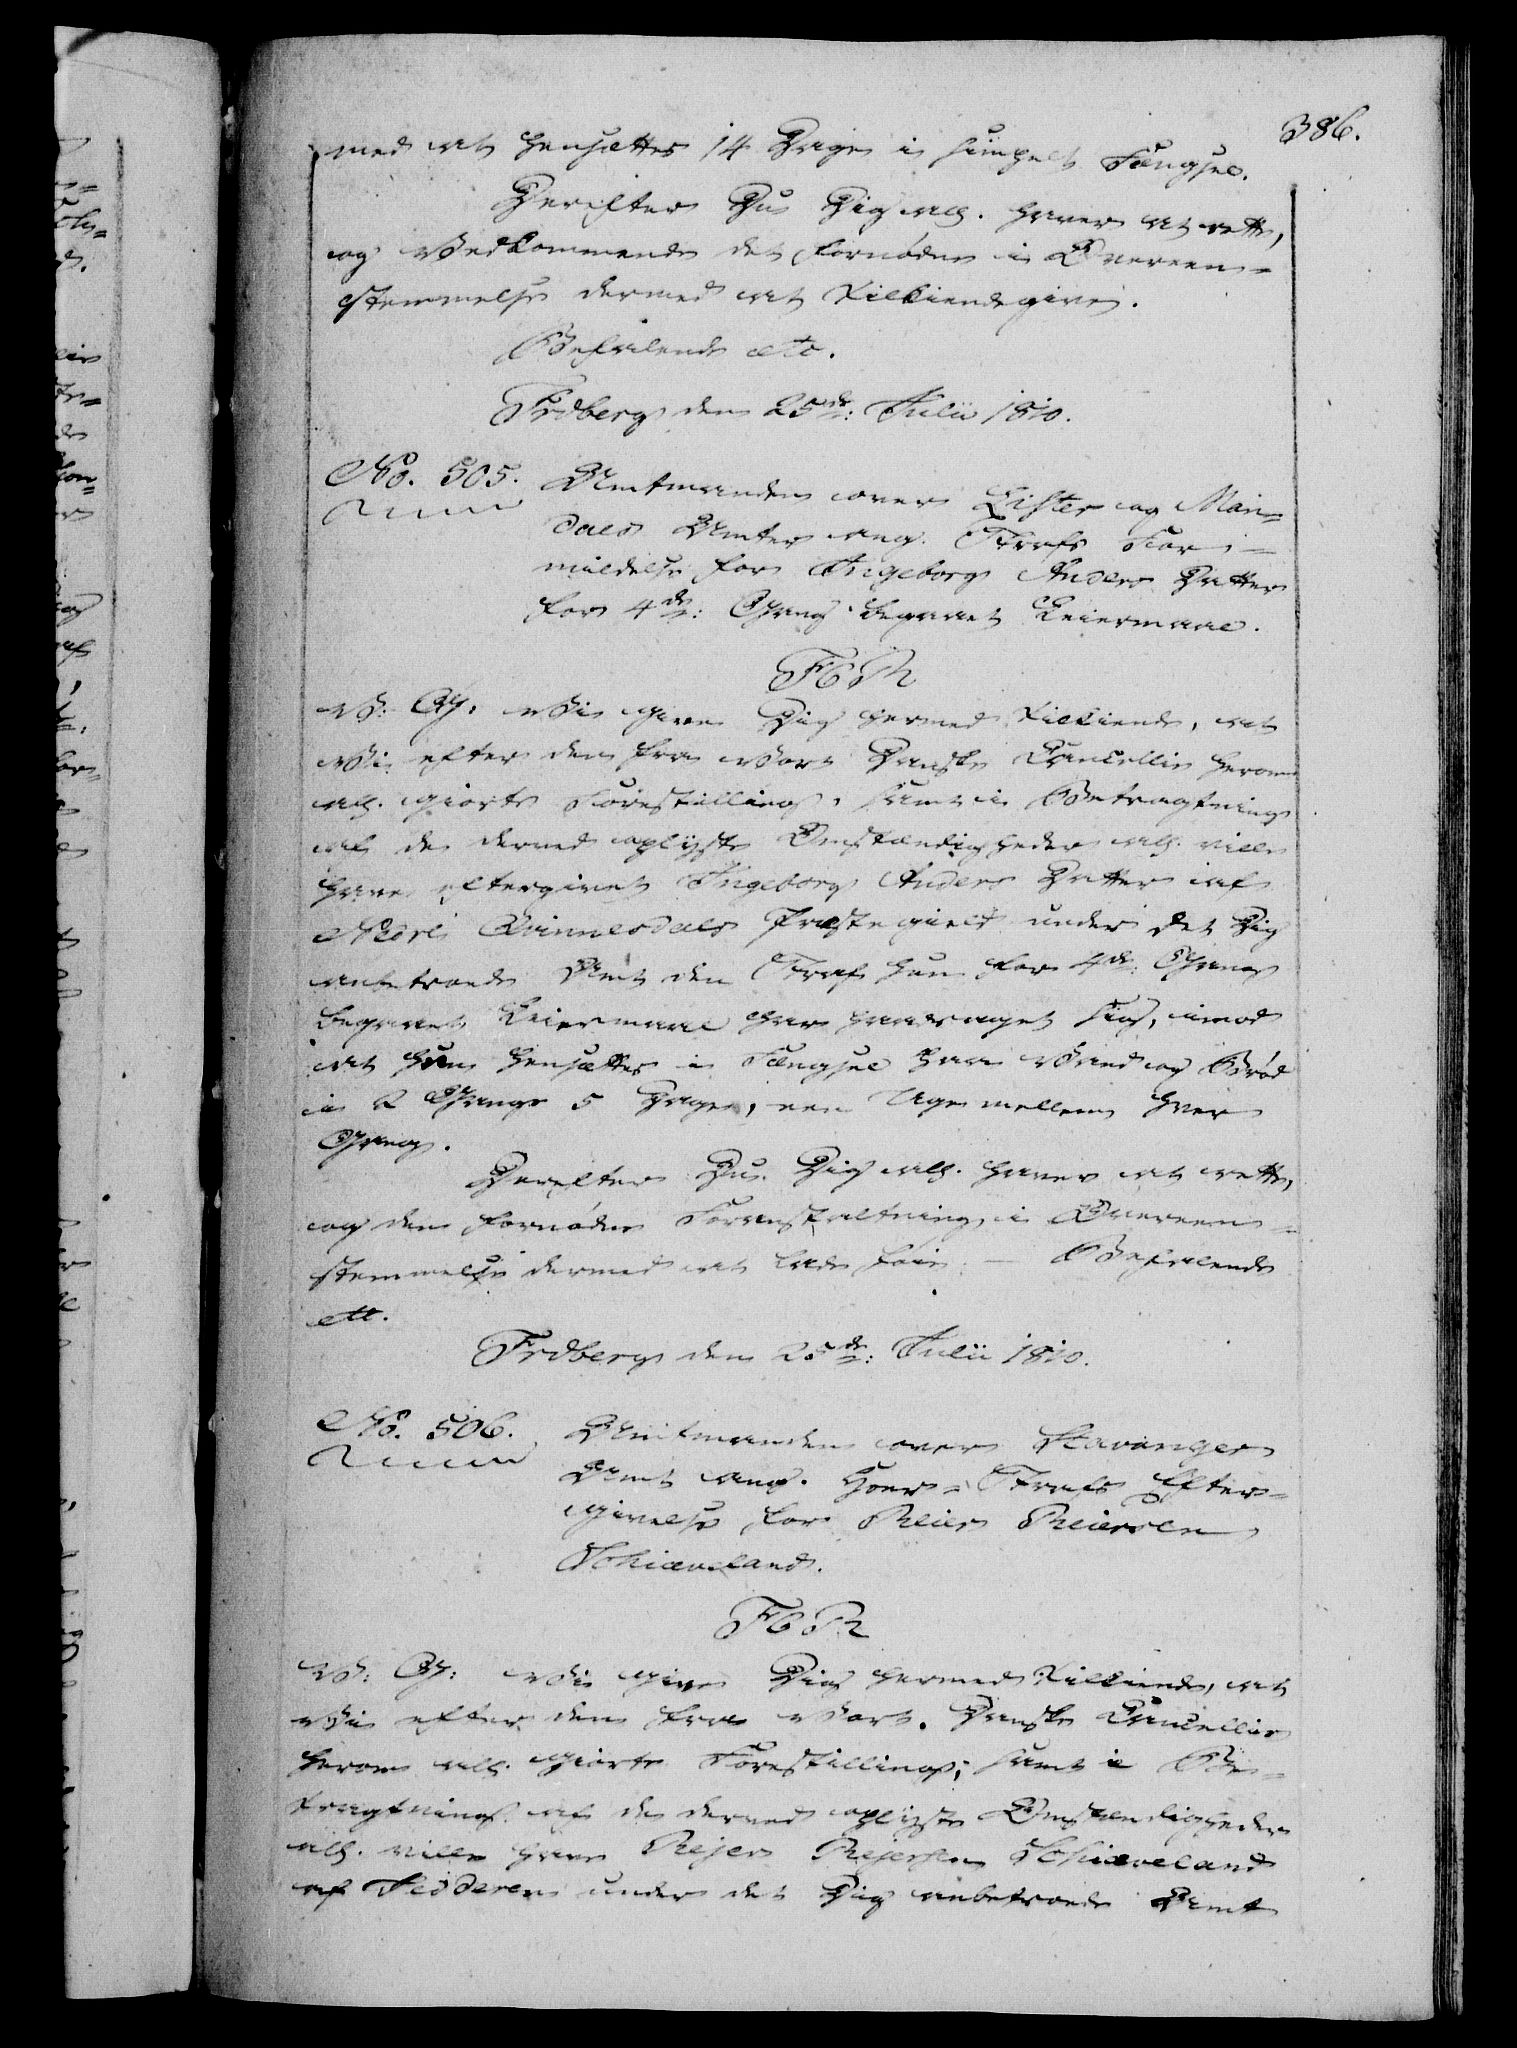 386.
med at hensættes 14 Dage i simpelt Fængsel.
Derefter Du Dig all. haver at rette,
og Vedkommende det fornødne i Overeens=
stemmelse dermed at tilkiendegive.
Befalende etc.
Frdberg den 25de: Julii 1810.
No. 505. Amtmanden over Lister og Man=
dals Amter ang. Strafs For=
mildelse for Ingeborg Anders Datter
for 4de: Gang begaaet Leiermaal.
F6R
V: G: Vi give Dig hermed tilkiende, at
Vi efter den fra Vort Danske Cancellie herom
all. giorte Forestilling, samt i Betragtning
af de derved oplyste Omstændigheder all. ville
have eftergivet Ingeborg Anders Datter af
Nedre Qvinnesdals Præstegield under det Dig
anbetroede Amt den Straf hun for 4de: Gang
begaaet Leiermaal har paadraget sig, imod
at hun hensættes i Fængsel paa Vand og Brød
i 2 Gange 5 Dage, een Uge mellem hver
Gang.
Derefter Du Dig all. haver at rette,
og den fornødne Foranstaltning i Overeens=
stemmelse dermed at lade føie. — Befalende
etc.
Frdberg den 25de: Julii 1810.
No. 506. Amtmanden over Stavanger
Amt ang. Hoer=Strafs Efter=
givelse for Reier Reiersen
Schiæveland.
F6R
V: G: Vi give Dig hermed tilkiende, at
Vi efter den fra Vort Danske Cancellie
herom all. giorte Forestilling, samt i Be=
tragtning af de derved oplyste Omstændigheder
all. ville have Rejer Rejersen Schiæveland
af under det Dig anbetroede Amt